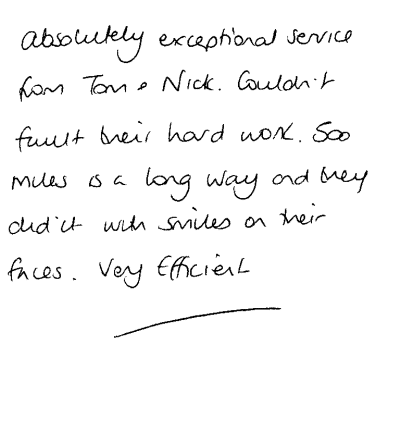 absolutely exceptional service
from Tom & Nick. Couldn't
fault their hard work. 500
miles is a long way and they
did it with smiles on their
faces. Very Efficient